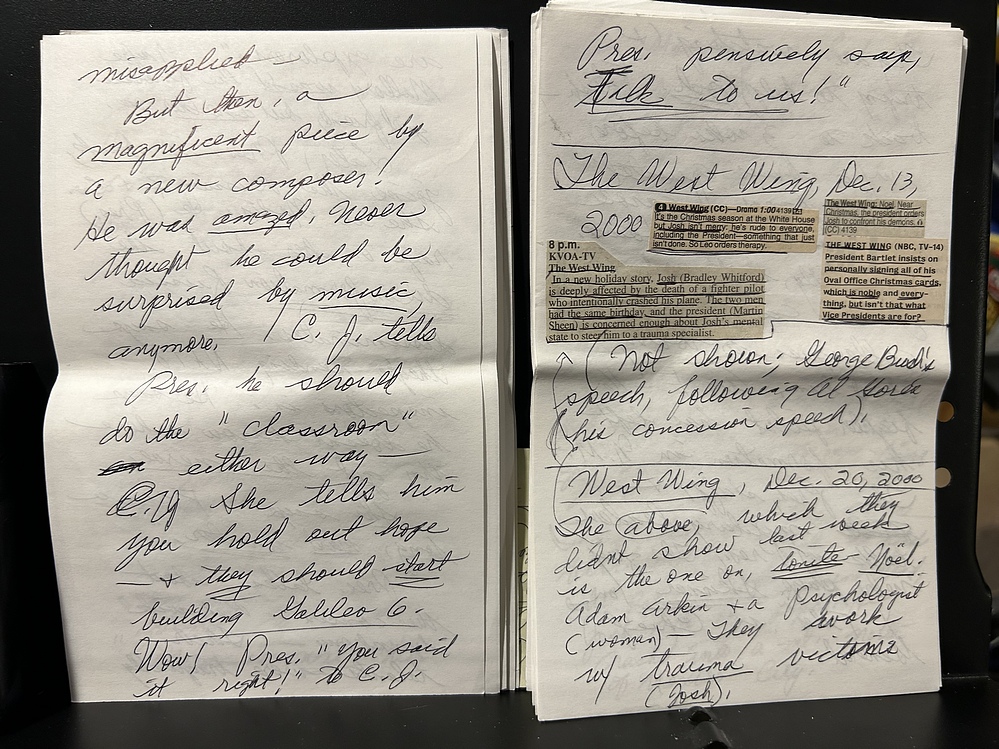 misapplied —
But then, a
magnificent piece by
a new composer!
He was amazed, never
thought he could be
surprised by music,
anymore. C. J. tells
Pres. he should
do the "classroom"
either way —
C.J. She tells him
you hold out hope
— + they should start
building Galileo 6.
Wow! Pres. "you said
it right!" to C.J.
Pres. pensively says,
Talk to us!"
The West Wing, Dec. 13,
2000
4 West Wing (CC)—Drama 1:00 4139
It's the Christmas season at the White House
but Josh isn't merry; he's rude to everyone,
including the President—something that just
isn't done. So Leo orders therapy.
The West Wing: Noel. Near
Christmas, the president orders
Josh to confront his demons.
(CC) 4139
8 p.m.
KVOA-TV
The West Wing
In a new holiday story, Josh (Bradley Whitford)
is deeply affected by the death of a fighter pilot
who intentionally crashed his plane. The two men
had the same birthday, and the president (Martin
Sheen) is concerned enough about Josh's mental
state to steer him to a trauma specialist.
THE WEST WING (NBC, TV-14)
President Bartlet insists on
personally signing all of his
Oval Office Christmas cards,
which is noble and every-
thing, but isn't that what
Vice Presidents are for?
(Not shown; George Bush's
speech, following Al Gore's
his concession speech).
West Wing, Dec. 20, 2000
The above, which they
didnt show last week
is the one on, tonite - Noël.
Adam Arkin + a Psychologist
(woman) — They work
w/ trauma victims
(Josh).